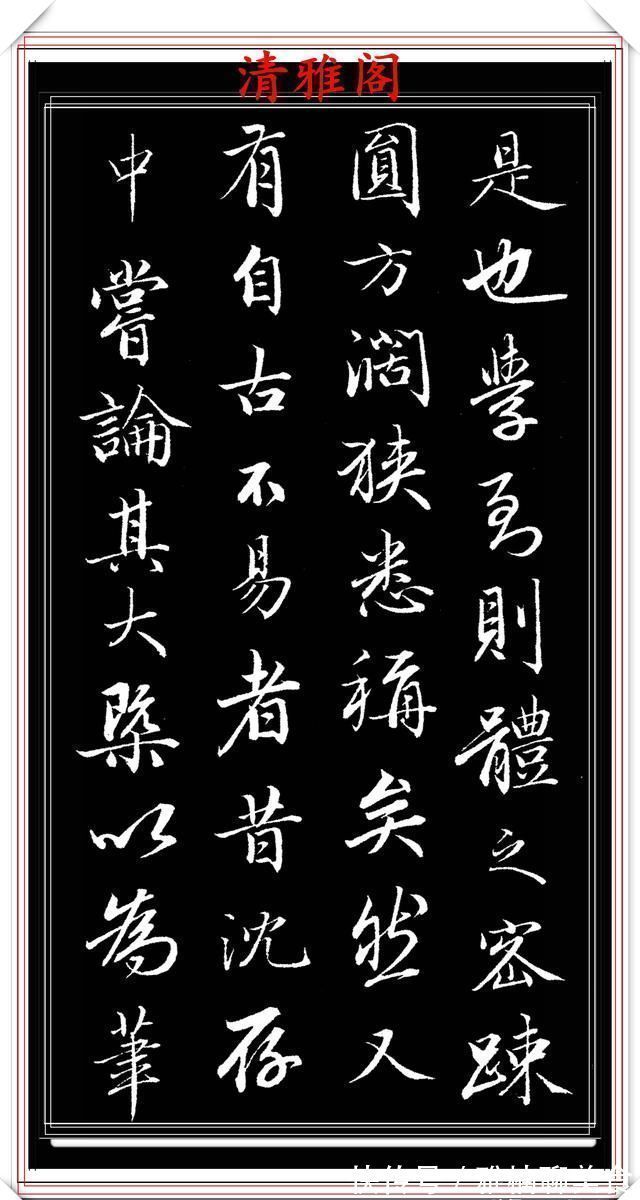 清雅阁
是也學至則體之密踈
圓方濶狹悉稱矣然又
有自古不易者昔沈存
中嘗論其大槩以為筆